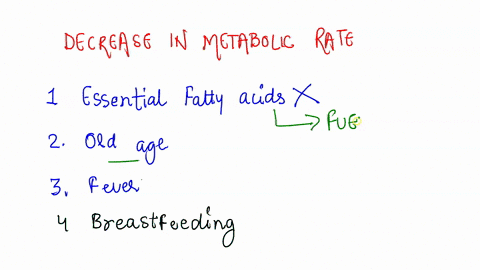 DECREASE IN METABOLIC RATE
1 Essential Fatty acids X
FUE
2. Old age
3. Fever
4 Breastfeeding